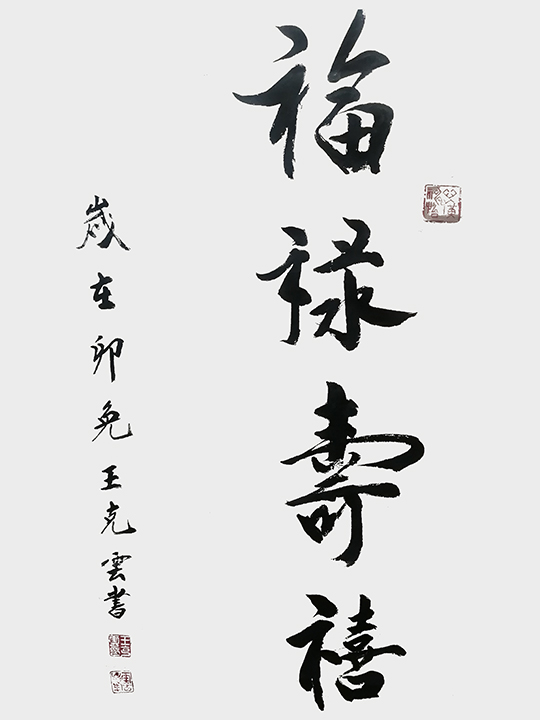 福禄壽禧
歲在卯兔王克雲書